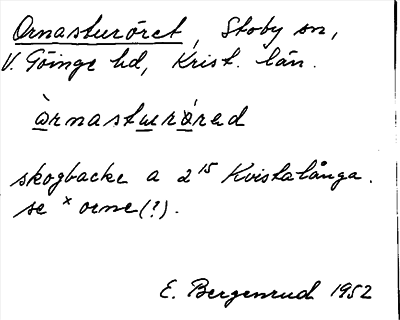 Ornasturöret, Stoby sn,
V. Göinge hd, Krist. län.
òrnasturǿred
skogbacke a 2¹⁵ Kvistalånga.
se ˣ orne (?).
E. Bergenrud 1952